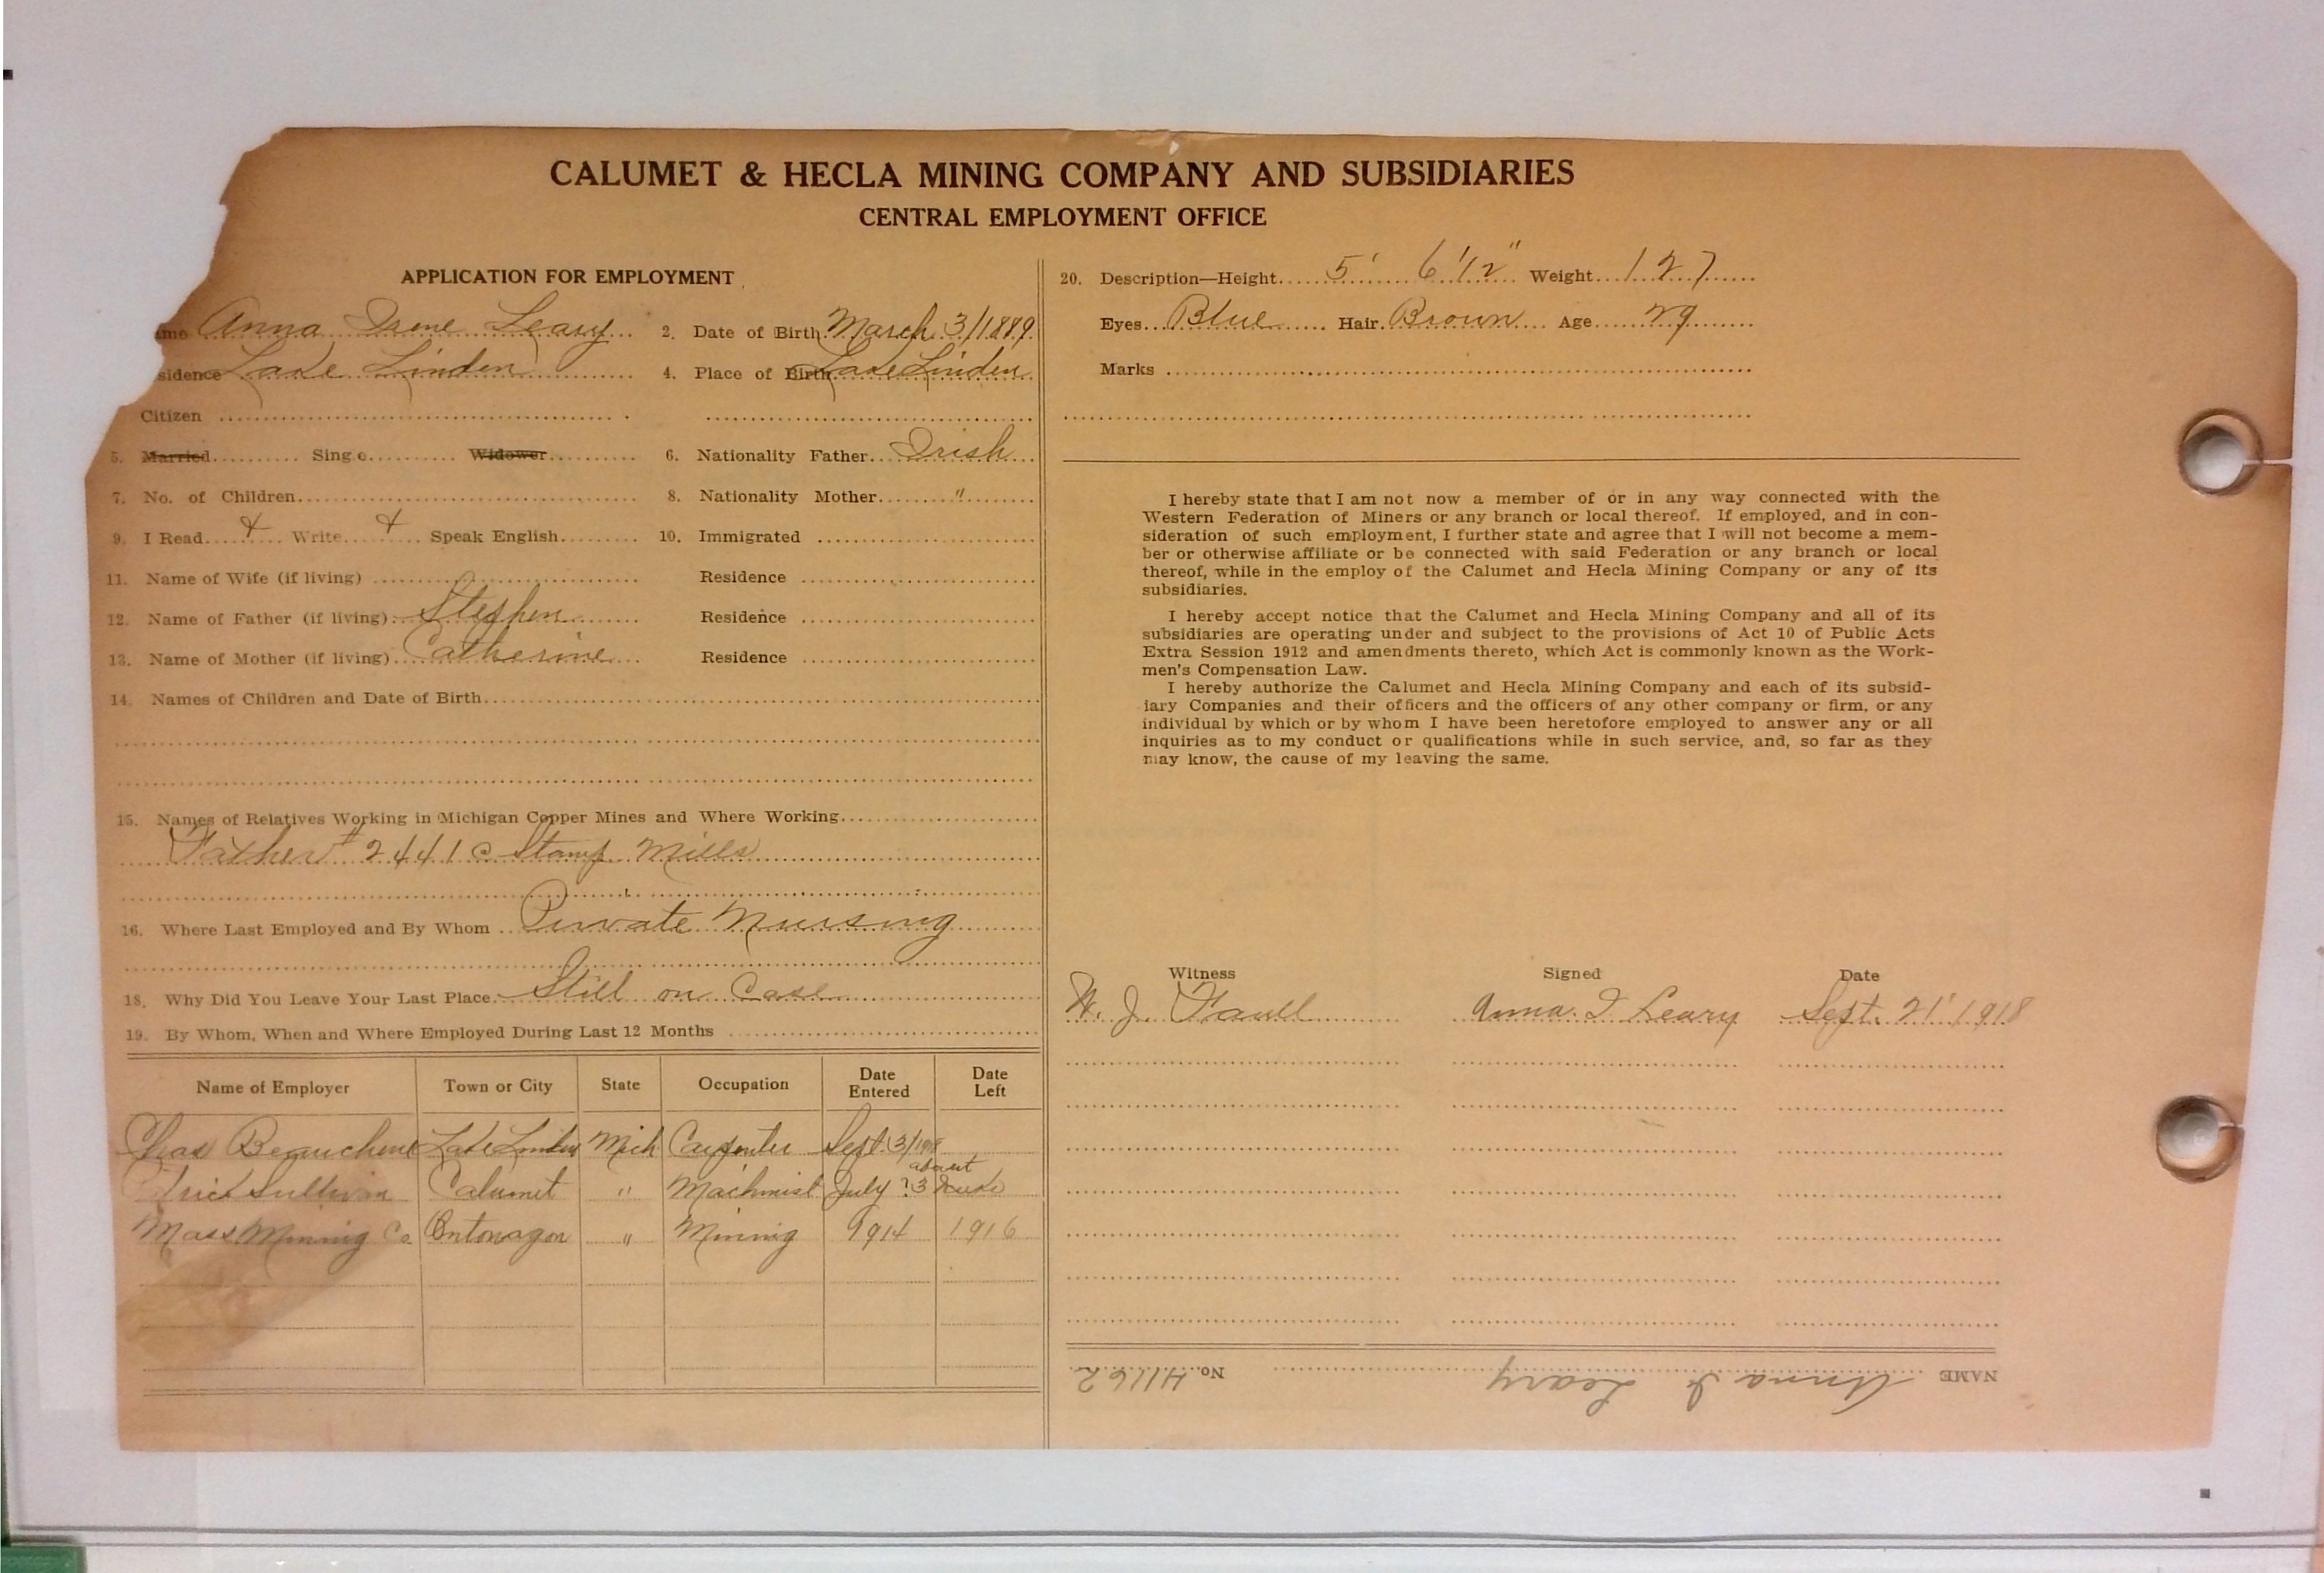 CALUMET & HECLA MINING COMPANY AND SUBSIDIARIES
CENTRAL EMPLOYMENT OFFICE
APPLICATION FOR EMPLOYMENT
ame Anna Irene Leary 2. Date of Birth March 3/1889
sidence Lake Linden 4. Place of Birth Lake Linden
Citizen
5. Married Sing e Widower 6. Nationality Father Irish
7. No. of Children 8. Nationality Mother "
9. I Read + Write + Speak English 10. Immigrated
11. Name of Wife (if living) Residence
12. Name of Father (if living) Stephen Residence
13. Name of Mother (if living) Catherine Residence
14. Names of Children and Date of Birth
15. Names of Relatives Working in Michigan Copper Mines and Where Working
Father # 2441 C Stamp Mills
16. Where Last Employed and By Whom Private Nursing
18. Why Did You Leave Your Last Place Still on Case
19. By Whom, When and Where Employed During Last 12 Months
Name of Employer Town or City State Occupation Date Entered Date Left
Chas Beauchene Lake Linden Mich Carpenter Sept 3/1918
Sullivan Calumet " Machinist July 23 about
Mass Mining Co Ontonagon " Mining 1914 1916
20. Description—Height 5' 6 1/2" Weight 127
Eyes Blue Hair Brown Age 29
Marks
I hereby state that I am not now a member of or in any way connected with the
Western Federation of Miners or any branch or local thereof. If employed, and in con-
sideration of such employment, I further state and agree that I will not become a mem-
ber or otherwise affiliate or be connected with said Federation or any branch or local
thereof, while in the employ of the Calumet and Hecla Mining Company or any of its
subsidiaries.
I hereby accept notice that the Calumet and Hecla Mining Company and all of its
subsidiaries are operating under and subject to the provisions of Act 10 of Public Acts
Extra Session 1912 and amendments thereto, which Act is commonly known as the Work-
men's Compensation Law.
I hereby authorize the Calumet and Hecla Mining Company and each of its subsid-
iary Companies and their officers and the officers of any other company or firm, or any
individual by which or by whom I have been heretofore employed to answer any or all
inquiries as to my conduct or qualifications while in such service, and, so far as they
may know, the cause of my leaving the same.
Witness Signed Date
W. J. Faull Anna I Leary Sept. 21' 1918
NAME Anna I Leary No. H1162